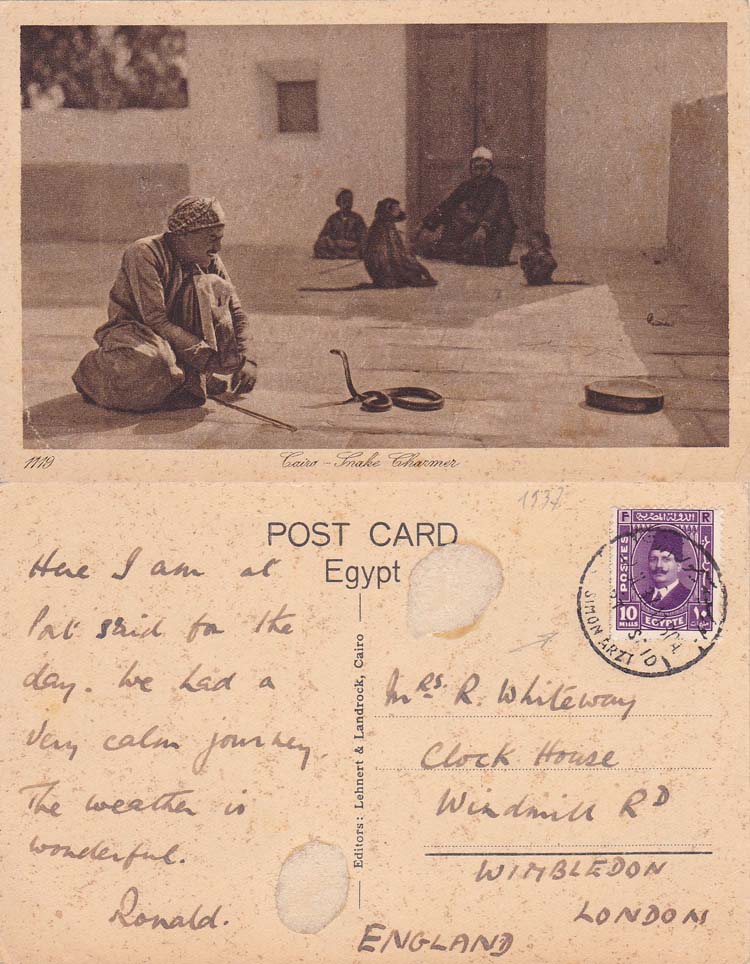 1119
Cairo - Snake Charmer
1937
POST CARD
Egypt
Here I am at
Port said for the
day. We had a
very calm journey.
The weather is
wonderful.
Ronald.
Editors: Lehnert & Landrock, Cairo
F R
POSTES
10
MILLS
١٠
EGYPTE
SIMON ARZT
Mrs. R. Whiteway
Clock House
Windmill RD
WIMBLEDON
LONDON
ENGLAND